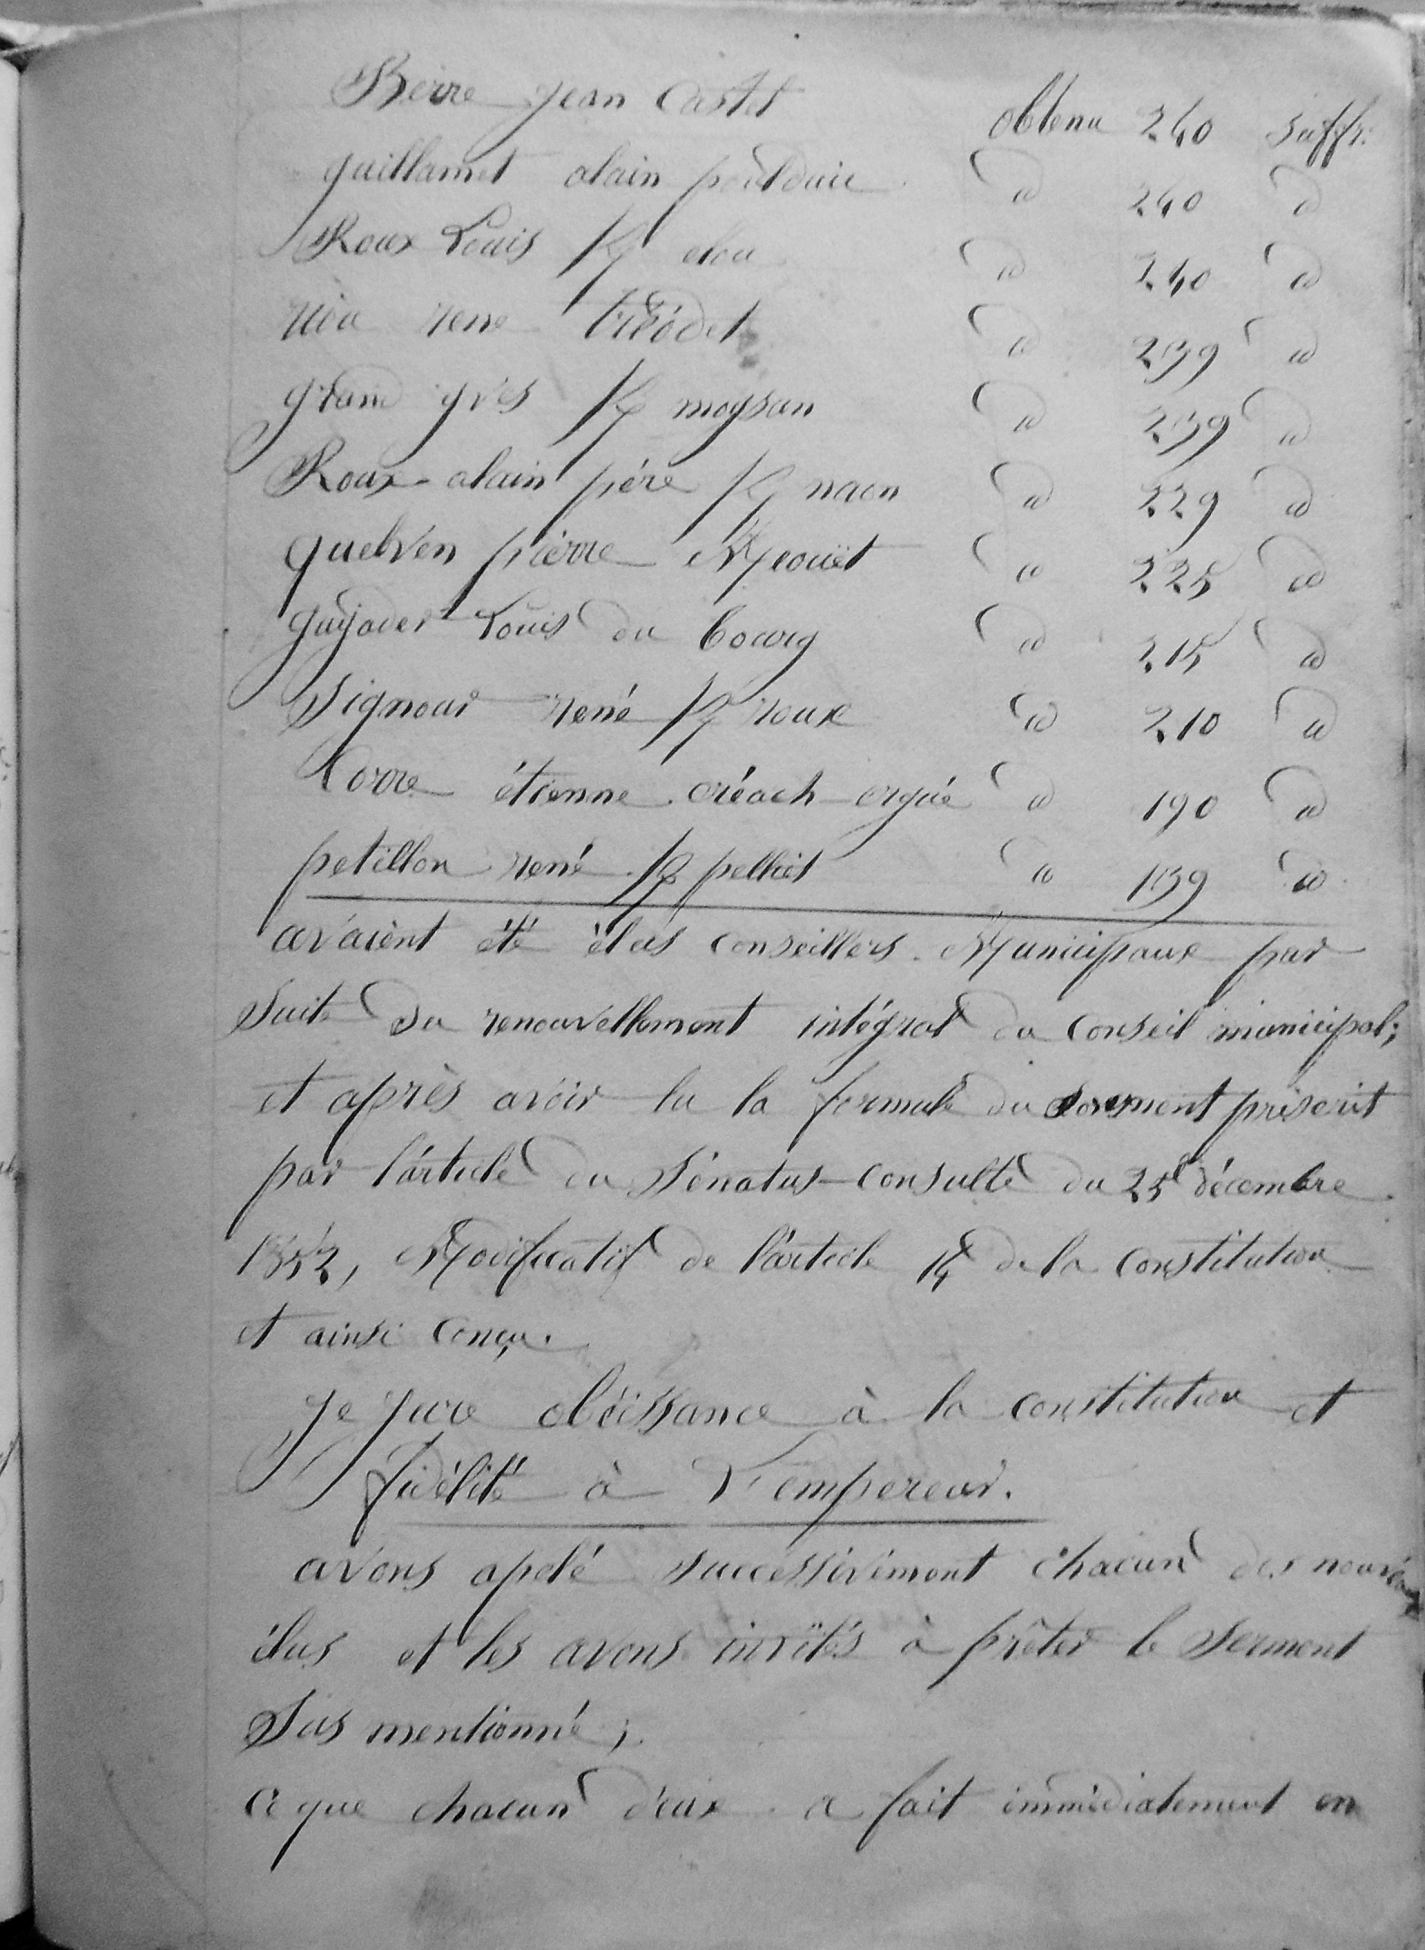 Berre jean Castel obtenu 240 suffr:
guillamet alain poulduic d 240 d
Roux Louis K/ elou d 240 d
rene tréodet d 239 d
grand yves K/ moysan d 239 d
Roux alain père K/ naon d 229 d
quelven pierre d 225 d
guyader Louis du bourg d 215 d
Signour rené K/ roux d 210 d
Corre étienne créach ergué d 190 d
petillon rené K/ pelliet d 139 d
avaient été élus conseillers Municipaux par
Suite du renouvellement intégral du Conseil municipal;
et après avoir lu la formule du serment priscrit
par l'article du Sénatus-consulte du 25 décembre
1852, Modificatif de l'article 14 de la Constitution
et ainsi Conçu.
je jure obéissance à la constitution et
fidélité à L'empereur.
avons apelé successivement chacun des nouveaux
élus et les avons invités à prêter le Serment
Sus mentionné;
Ce que chacun d'eux a fait immédiatement en